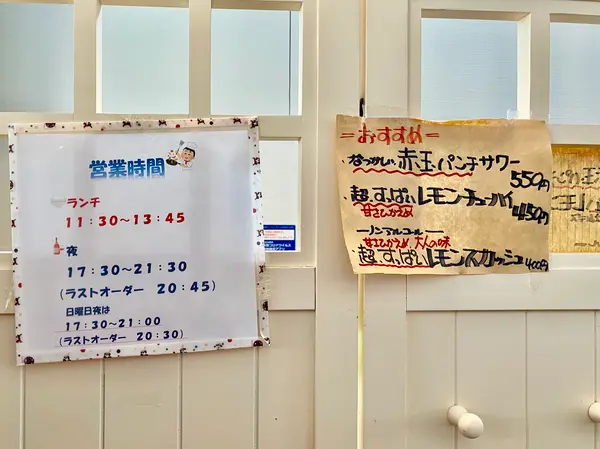 営業時間
ランチ
11:30～13:45
夜
17:30～21:30
(ラストオーダー 20:45)
日曜日夜は
17:30～21:00
(ラストオーダー 20:30)
=おすすめ=
なつかしい 赤玉パンチサワー
550円
超すっぱいレモンチューハイ
甘さひかえめ
450円
ーノンアルコールー
甘さひかえめ、大人の味
超すっぱいレモンスカッシュ 400円